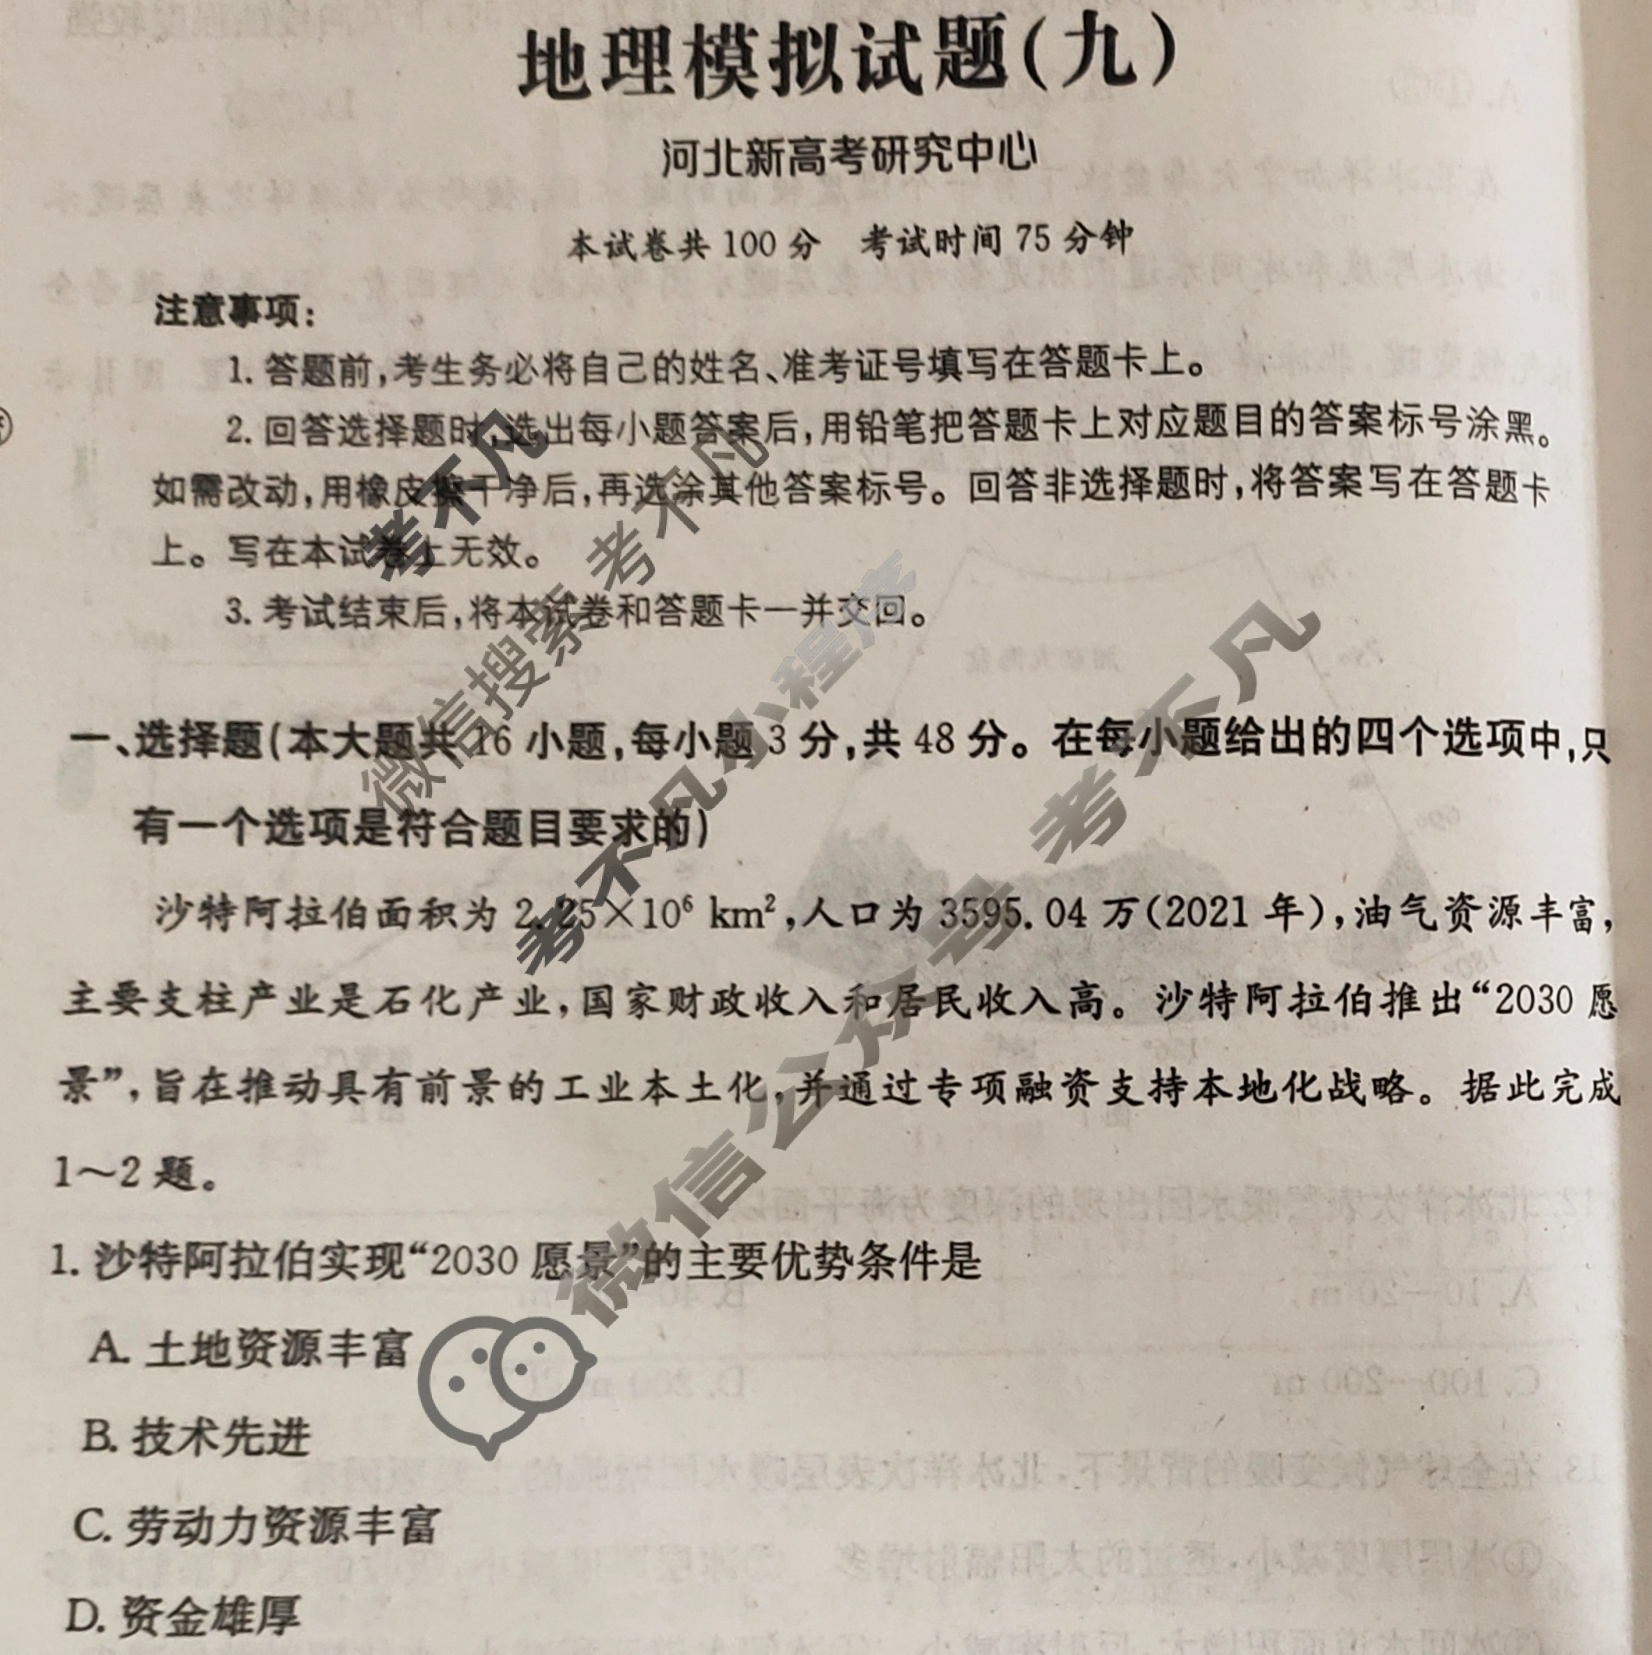 地理模拟试题(九)
河北新高考研究中心
本试卷共 100 分 考试时间 75 分钟
注意事项:
1. 答题前,考生务必将自己的姓名、准考证号填写在答题卡上。
2. 回答选择题时,选出每小题答案后,用铅笔把答题卡上对应题目的答案标号涂黑。
如需改动,用橡皮擦干净后,再选涂其他答案标号。回答非选择题时,将答案写在答题卡
上。写在本试卷上无效。
3. 考试结束后,将本试卷和答题卡一并交回。
一、选择题(本大题共 16 小题,每小题 3 分,共 48 分。在每小题给出的四个选项中,只
有一个选项是符合题目要求的)
沙特阿拉伯面积为 2.25×10⁶ km²,人口为 3595.04 万(2021 年),油气资源丰富,
主要支柱产业是石化产业,国家财政收入和居民收入高。沙特阿拉伯推出“2030 愿
景”,旨在推动具有前景的工业本土化,并通过专项融资支持本地化战略。据此完成
1～2 题。
1. 沙特阿拉伯实现“2030 愿景”的主要优势条件是
A. 土地资源丰富
B. 技术先进
C. 劳动力资源丰富
D. 资金雄厚
考不凡
微信搜索 考不凡
考不凡小程序
微信公众号 考不凡